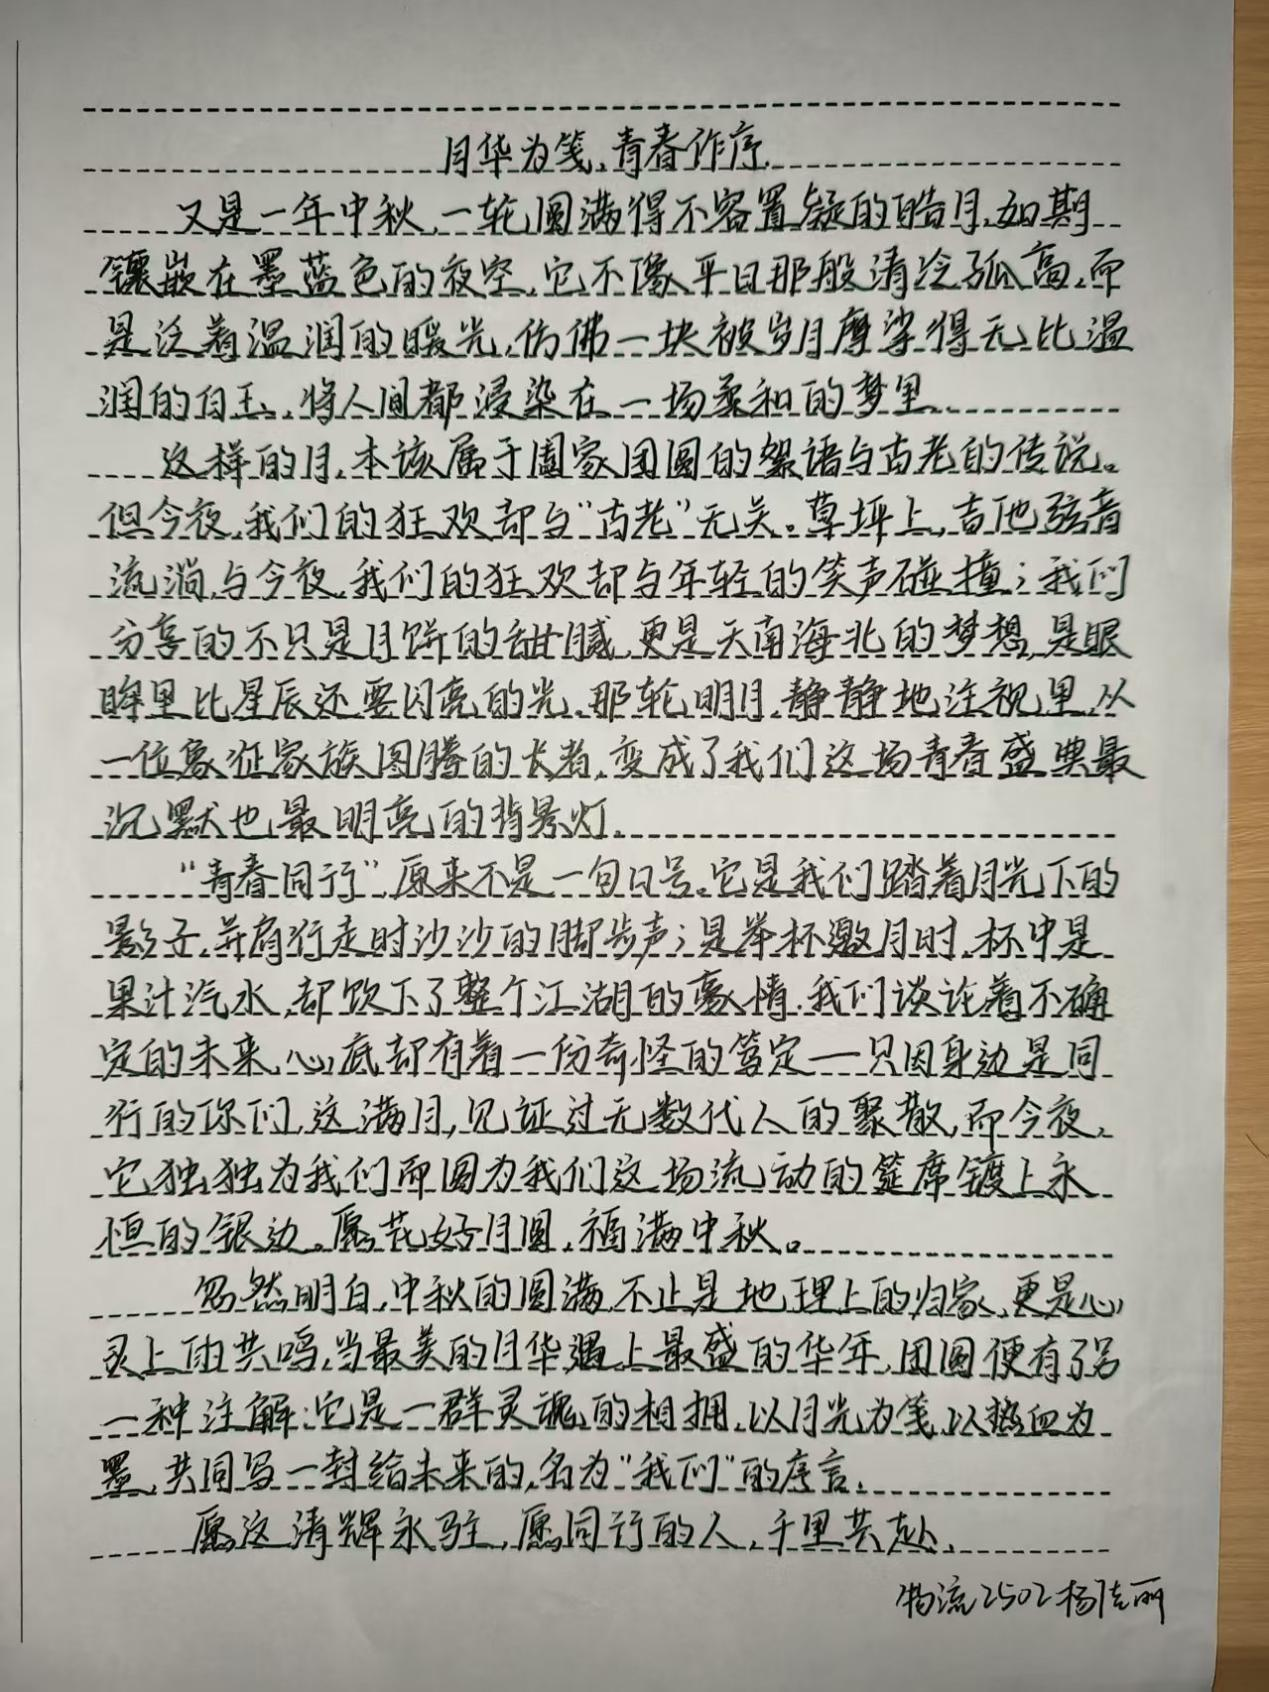 月华为笺,青春作序.
又是一年中秋,一轮圆满得不容置疑的皓月,如期
镶嵌在墨蓝色的夜空,它不像平日那般清冷孤高,而
是泛着温润的暖光,仿佛一块被岁月摩挲得无比温
润的白玉,将人间都浸染在一场柔和的梦里.
这样的月,本该属于阖家团圆的絮语与古老的传说。
但今夜,我们的狂欢却与“古老”无关。草坪上,吉他弦音
流淌,与今夜,我们的狂欢却与年轻的笑声碰撞;我们
分享的不只是月饼的甜腻,更是天南海北的梦想,是眼
眸里比星辰还要闪亮的光.那轮明月,静静地注视里,从
一位象征家族图腾的长者,变成了我们这场青春盛典最
沉默也最明亮的背景灯.
“青春同行”,原来不是一句口号。它是我们踏着月光下的
影子,并肩行走时沙沙的脚步声;是举杯邀月时,杯中是
果汁汽水,却饮下了整个江湖的豪情.我们谈论着不确
定的未来,心底却有着一份奇怪的笃定——只因身边是同
行的你们,这满月,见证过无数代人的聚散,而今夜,
它独独为我们而圆为我们这场流动的筵席镀上永
恒的银边。愿花好月圆,福满中秋。
忽然明白,中秋的圆满,不止是地理上的归家,更是心
灵上的共鸣,当最美的月华遇上最盛的华年,团圆便有了另
一种注解:它是一群灵魂的相拥,以月光为笺,以热血为
墨,共同写一封给未来的,名为“我们”的序言.
愿这清辉永驻,愿同行的人,千里共赴.
物流2502杨佳丽